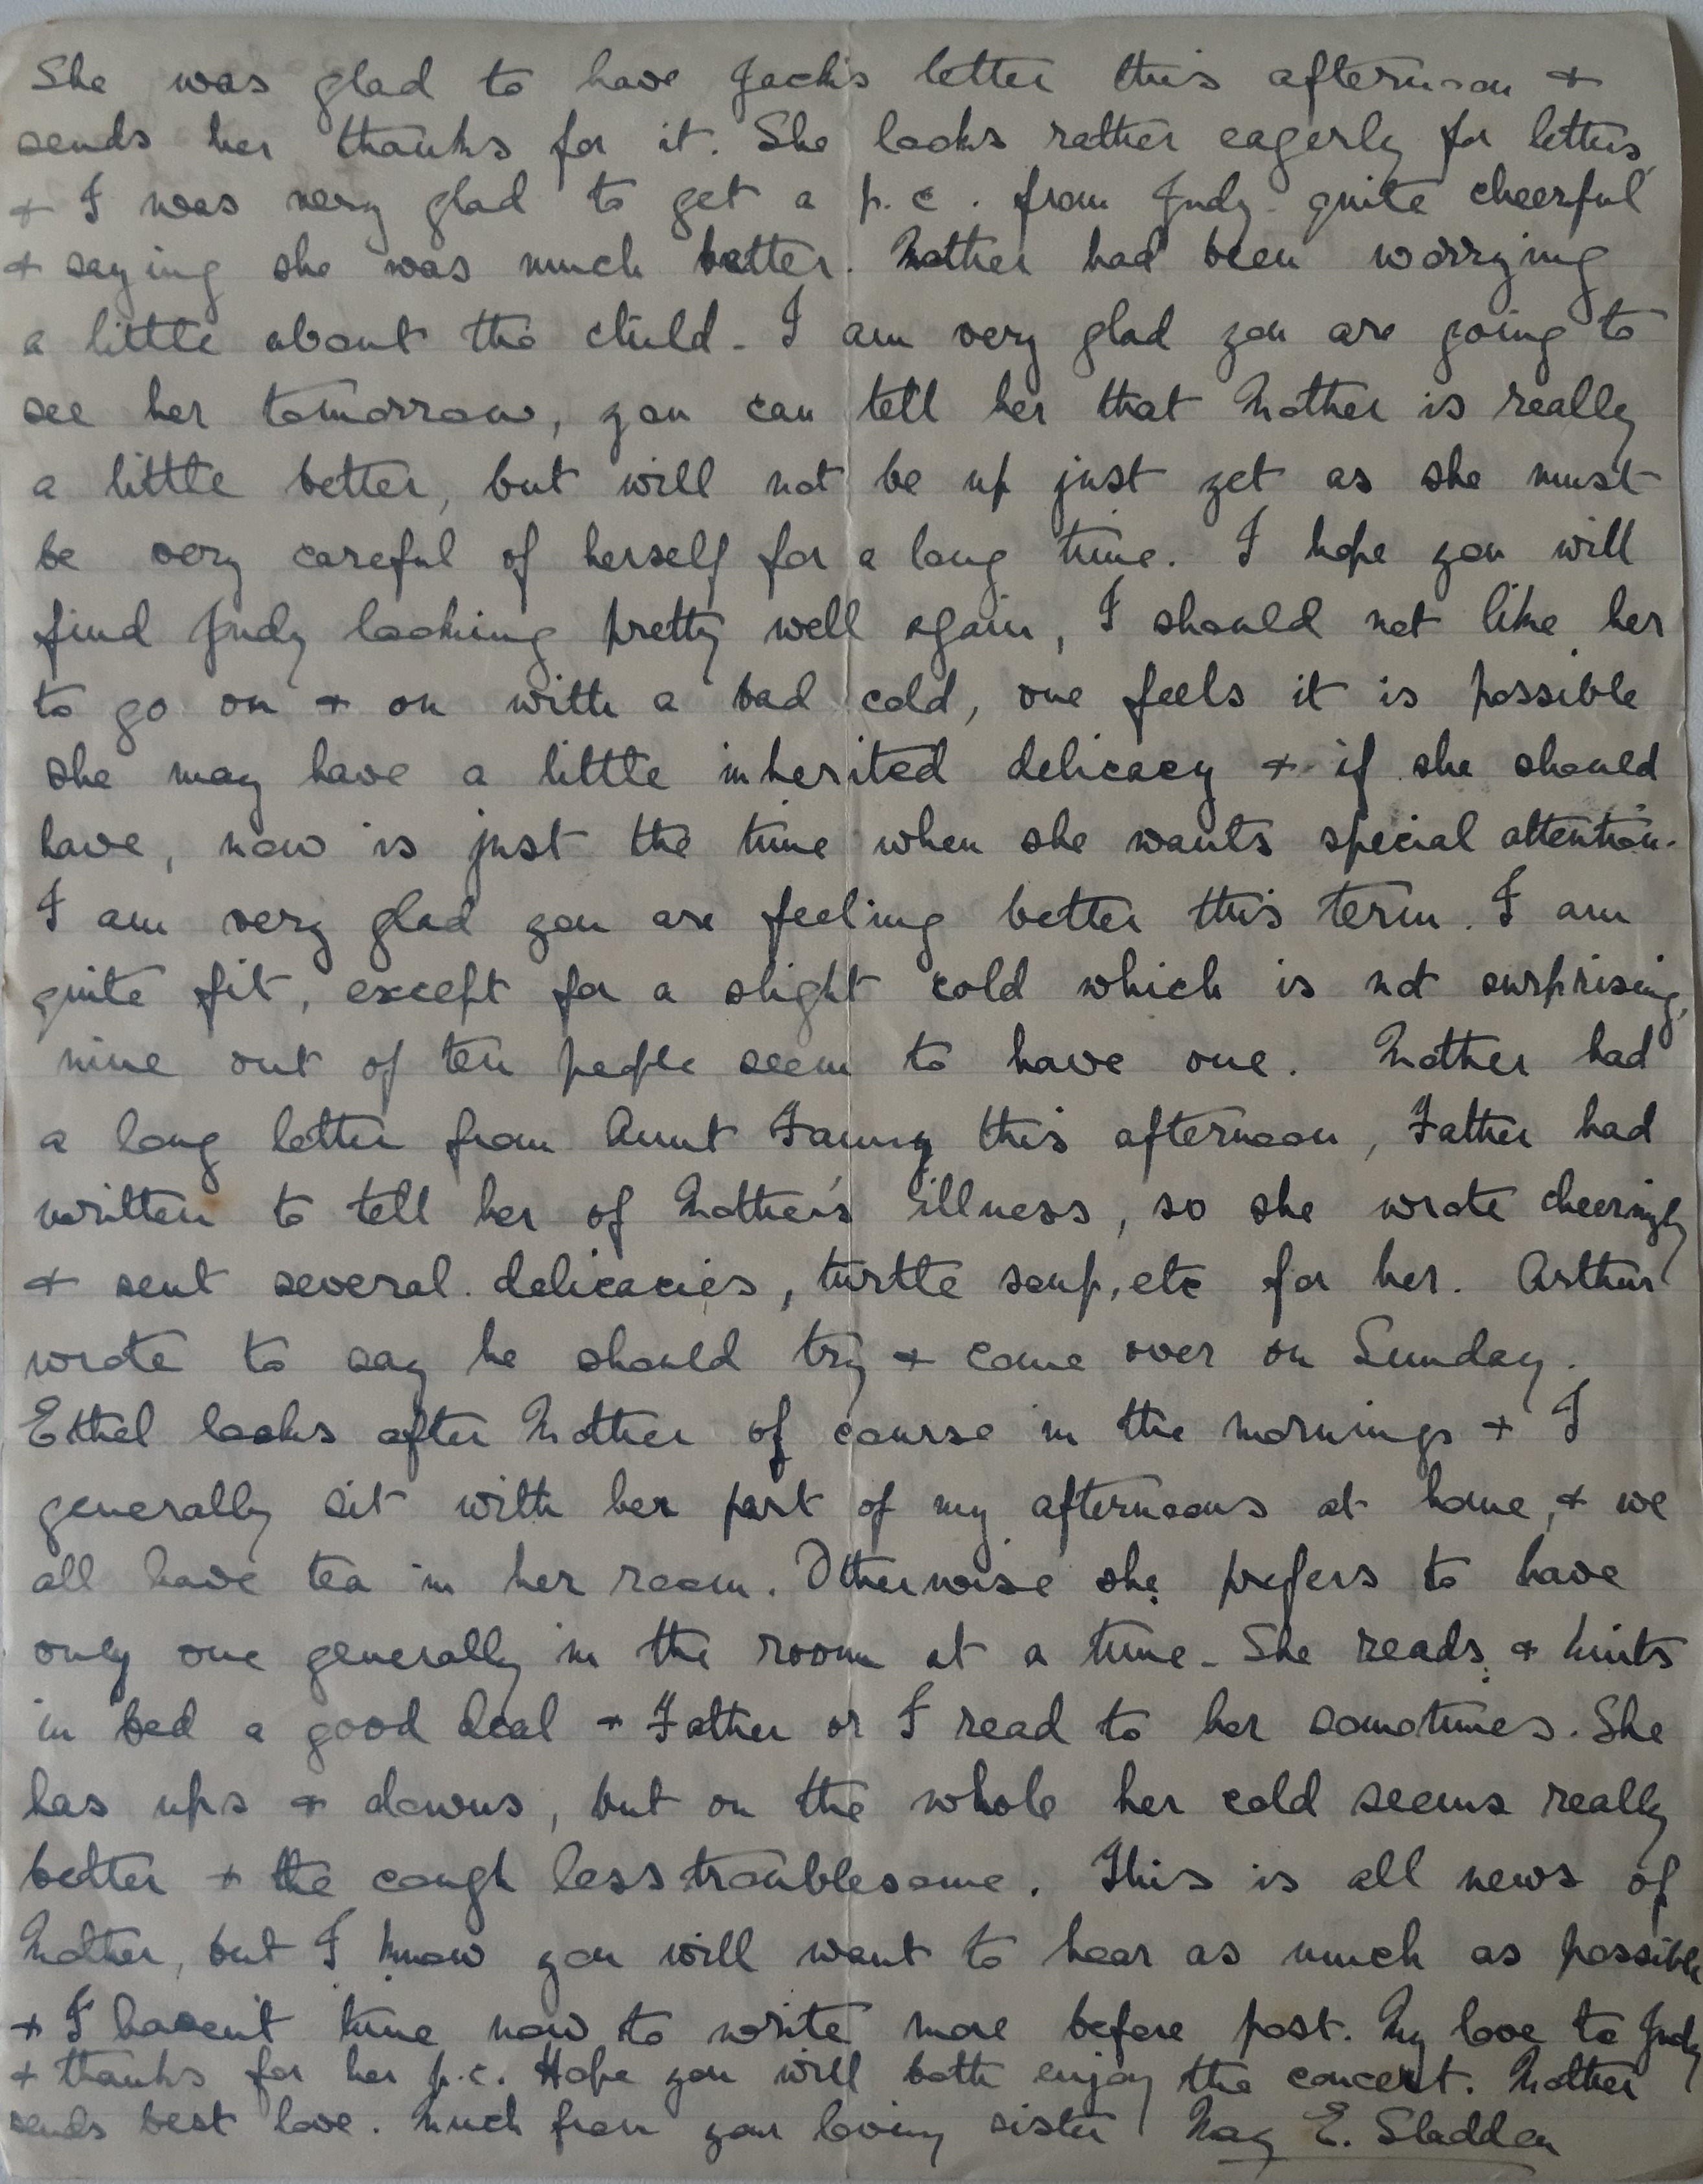 She was glad to have Jack's letter this afternoon &
sends her thanks for it. She looks rather eagerly for letters,
& I was very glad to get a p.c. from Judy quite cheerful
& saying she was much better. Mother had been worrying
a little about the child. I am very glad you are going to
see her tomorrow, you can tell her that Mother is really
a little better, but will not be up just yet as she must
be very careful of herself for a long time. I hope you will
find Judy looking pretty well again, I should not like her
to go on & on with a bad cold, one feels it is possible
she may have a little inherited delicacy & if she should
have, now is just the time when she wants special attention.
I am very glad you are feeling better this term. I am
quite fit, except for a slight cold which is not surprising,
nine out of ten people seem to have one. Mother had
a long letter from Aunt Fanny this afternoon, Father had
written to tell her of Mother's illness, so she wrote cheeringly
& sent several delicacies, turtle soup, etc for her. Arthur
wrote to say he should try & come over on Sunday.
Ethel looks after Mother of course in the mornings & I
generally sit with her part of my afternoons at home, & we
all have tea in her room. Otherwise she prefers to have
only one generally in the room at a time. She reads & knits
in bed a good deal & Father or I read to her sometimes. She
has ups & downs, but on the whole her cold seems really
better & the cough less troublesome. This is all news of
Mother, but I know you will want to hear as much as possible
& I haven't time now to write more before post. My love to Judy
& thanks for her p.c. Hope you will both enjoy the concert. Mother
sends best love. Much from your loving sister May E. Sladden